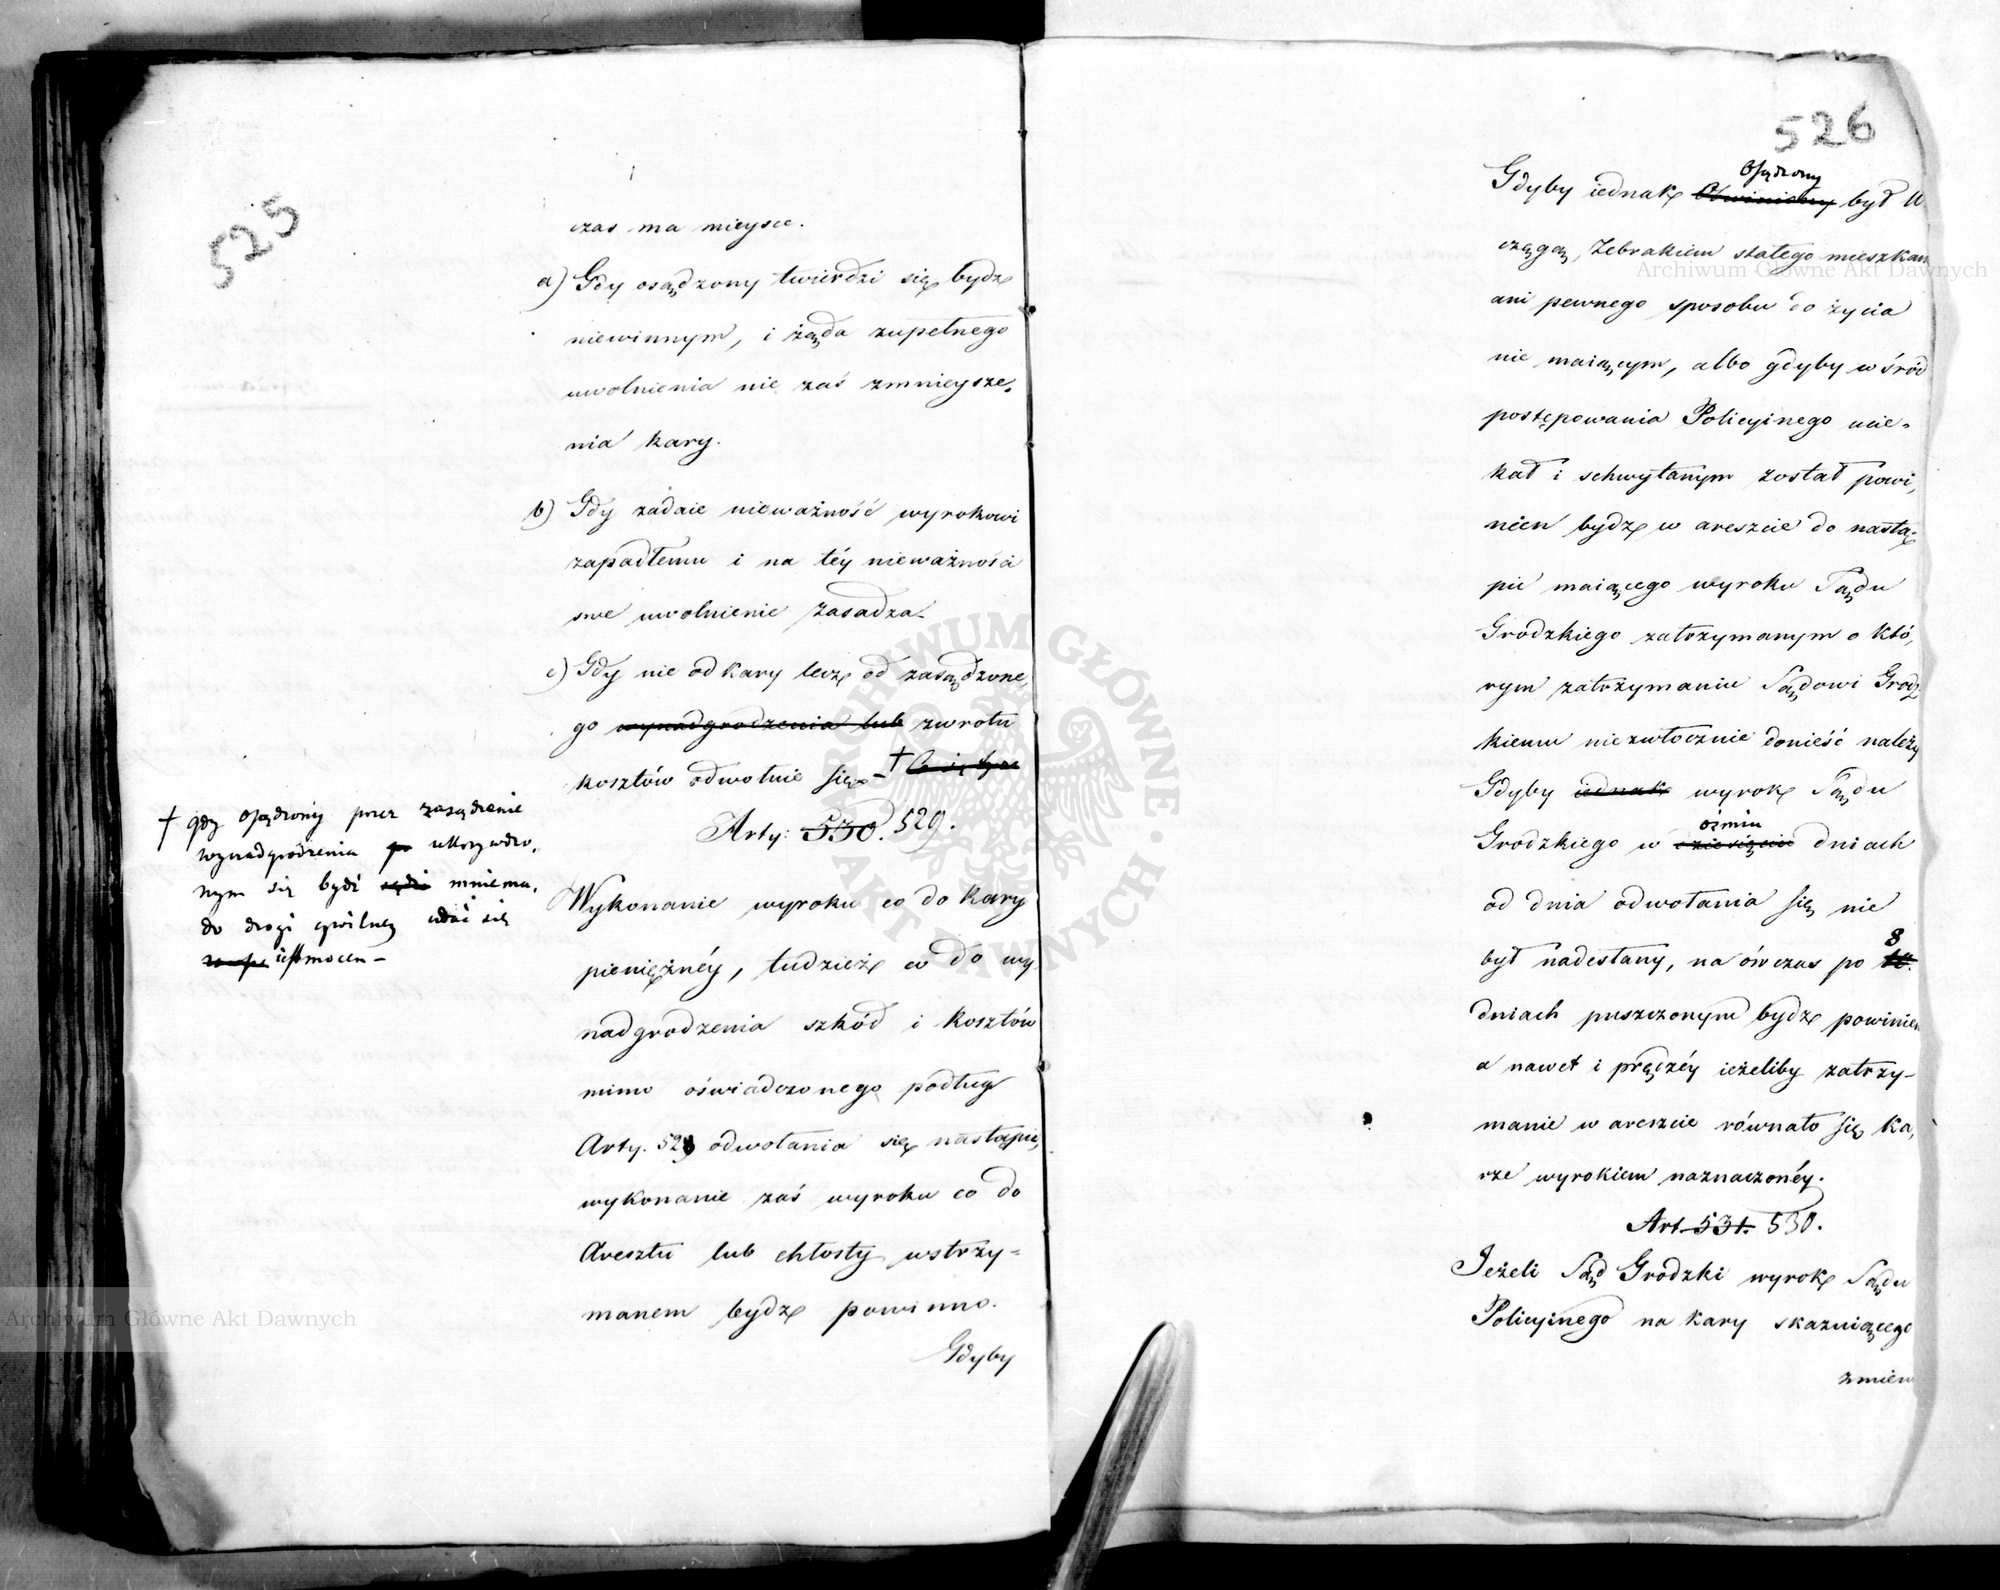 525
czas ma mieysce.
a) Gdy osądzony twierdzi się bydz
niewinnym, i żąda zupełnego
uwolnienia nie zaś zmnieysze-
nia kary.
b) Gdy zadaie nieważność wyrokowi
zapadłemu i na téy nieważności
swe uwolnienie zasadza.
c) Gdy nie od kary lecz od zasądzone-
go wynadgrodzenia lub zwrotu
kosztów odwołuie się - †
Arty: 530. 529.
† gdy osądzony przez zasądzenie
wynadgrodzenia ukrzywdzo-
nym się bydź mniema,
do drogi cywilney udać się
iest mocen -
Wykonanie wyroku co do kary
pieniężnéy, tudzież co do wy
nadgrodzenia szkód i kosztów
mimo oświadczonego podług
Arty. 529 odwołania się nastąpi,
wykonanie zaś wyroku co do
Aresztu lub chłosty wstrzy-
manem bydz powinno.
Gdyby
526
Osądzony
Gdyby iednak Obwiniony był W
częgą, Żebrakiem stałego mieszkan
ani pewnego sposobu do życia
nie maiącym, albo gdyby wśród
postępowania Policyinego ucie-
kał i schwytanym został powi-
nien bydz w areszcie do nastą-
pić maiącego wyroku Sądu
Grodzkiego zatrzymanym o któ-
rym zatrzymaniu Sądowi Grodz
kiemu niezwłocznie donieść należy
Gdyby iednak wyrok Sądu
ośmiu
Grodzkiego w dziesięciu dniach
od dnia odwołania się nie
był nadesłany, na ówczas po 8
dniach puszczonym bydz powinien
a nawet i prędzéy ieżeliby zatrzy-
manie w areszcie równało się ka-
rze wyrokiem naznaczonéy.
Art. 531. 530.
Jeżeli Sąd Grodzki wyrok Sądu
Policyinego na kary skazuiącego
zmien
Archiwum Główne Akt Dawnych
Archiwum Główne Akt Dawnych
ARCHIWUM GŁÓWNE AKT DAWNYCH